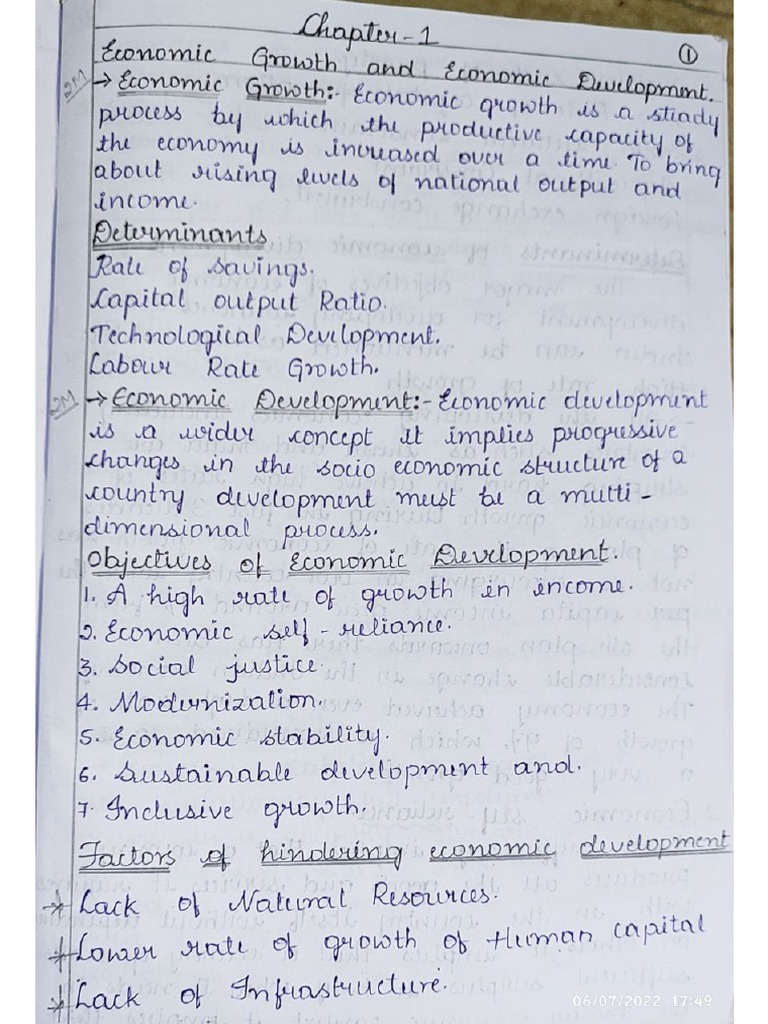 Chapter-1
1
Economic Growth and Economic Development.
2M → Economic Growth:- Economic growth is a steady
process by which the productive capacity of
the economy is increased over a time. To bring
about rising levels of national output and
income.
Determinants
Rate of savings.
Capital output Ratio.
Technological Development.
Labour Rate Growth.
2M → Economic Development:- Economic development
is a wider concept it implies progressive
changes in the socio economic structure of a
country development must be a multi-
dimensional process.
Objectives of Economic Development.
1. A high rate of growth in income.
2. Economic self-reliance.
3. Social justice.
4. Modernization.
5. Economic stability.
6. Sustainable development and.
7. Inclusive growth.
Factors of hindering economic development
* Lack of Natural Resources.
* Lower rate of growth of Human capital
* Lack of Infrastructure.
06/07/2022 17:49